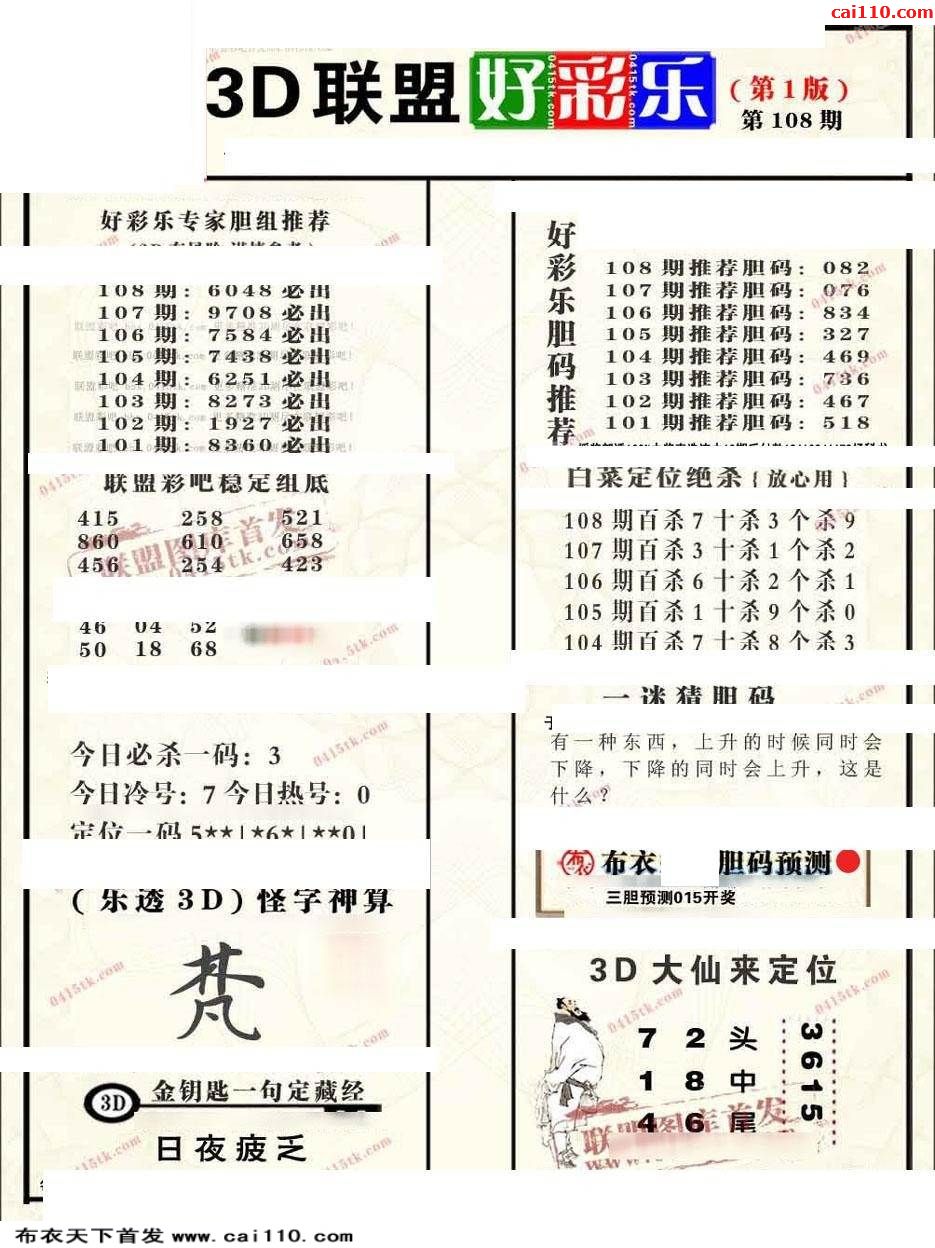 cai110.com
3D联盟好彩乐
(第1版)
第108期
好彩乐专家胆组推荐
108期:6048必出
107期:9708必出
106期:7584必出
105期:7438必出
104期:6251必出
103期:8273必出
102期:1927必出
101期:8360必出
联盟彩吧稳定组底
415 258 521
860 610 658
456 254 423
46 04 52
50 18 68
今日必杀一码:3
今日冷号:7今日热号:0
定位一码5**|*6*|**0|
(乐透3D)怪字神算
梵
3D 金钥匙一句定藏经
日夜疲乏
好彩乐胆码推荐
108期推荐胆码:082
107期推荐胆码:076
106期推荐胆码:834
105期推荐胆码:327
104期推荐胆码:469
103期推荐胆码:736
102期推荐胆码:467
101期推荐胆码:518
白菜定位绝杀{放心用}
108期百杀7十杀3个杀9
107期百杀3十杀1个杀2
106期百杀6十杀2个杀1
105期百杀1十杀9个杀0
104期百杀7十杀8个杀3
一谜猜胆码
有一种东西，上升的时候同时会
下降，下降的同时会上升，这是
什么？
布衣 胆码预测
三胆预测015开奖
3D大仙来定位
7 2 头
1 8 中
4 6 尾
3615
联盟图库首发
0415tk.com
布衣天下首发 www.cai110.com